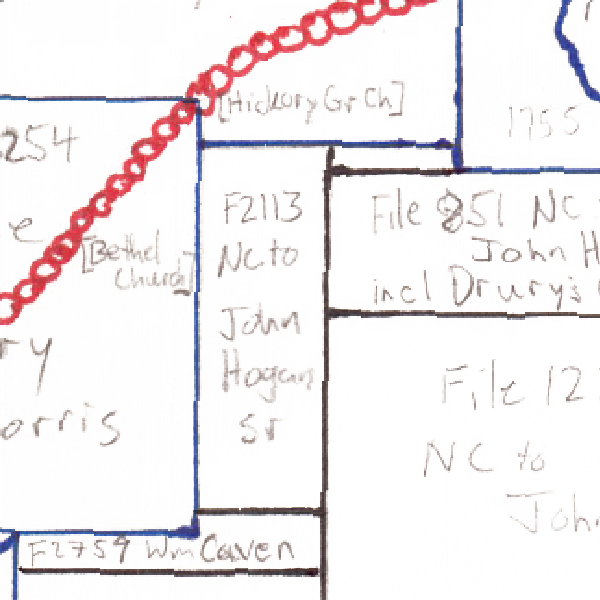 [Hickory Gr Ch]
1755
254
e
[Bethel
Church]
ry
orris
F2113
NC to
John
Hogan
sr
File 851 NC
John H
incl Drury's
File 12
NC to
John
F2759 Wm Caven